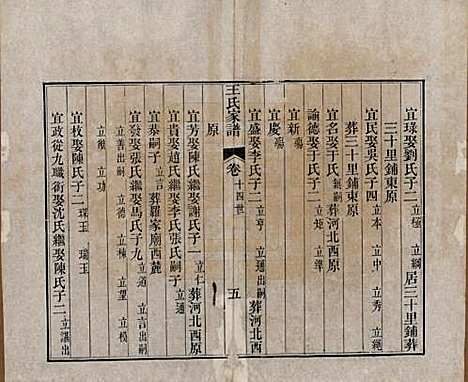 宜琭娶劉氏子二 立極 立綱 居三十里鋪葬
三十里鋪東原
宜民娶吳氏子四 立本 立中 立秀 立
葬三十里鋪東原
宜名娶于氏子 葬河北西原
諭德娶于氏子二 立矩 立準
宜新 殤
宜慶 殤
宜盛娶李氏子二 立亨 立通出嗣 葬河北西
王氏家譜 卷 十四世 五
原
宜芳娶陳氏繼娶謝氏子一 立仁 葬河北西原
宜貴娶趙氏繼娶李氏張氏嗣子 立通
宜恭嗣子 立言 葬羅家廟西麓
宜發娶張氏繼娶馬氏子九 立道 立言出嗣
立善出嗣 立德 立棟 立望 立模
立發 立功
宜枝娶陳氏子二 珠玉 瑞玉
宜政從九職銜娶沈氏繼娶陳氏子二 立湛出